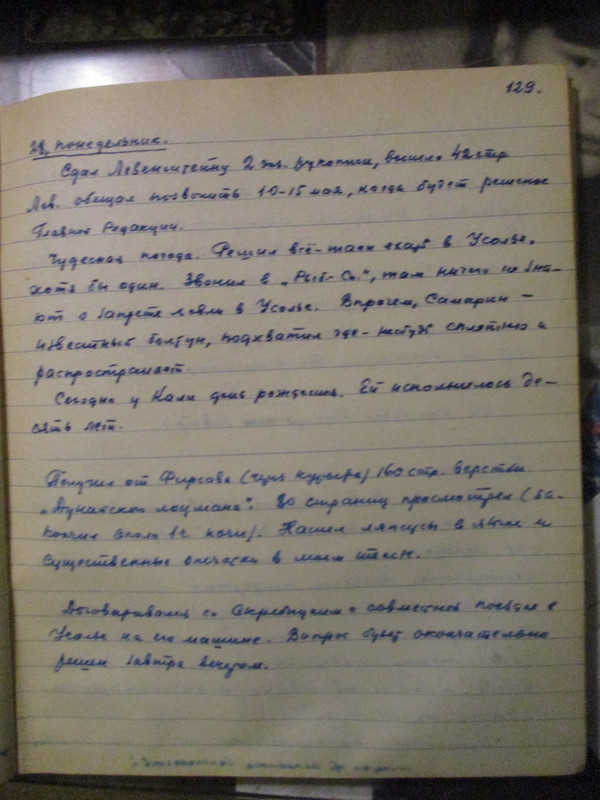 129.
28, понедельник.
Сдал Левенштейну 2 экз. рукописи, вышло 42 стр
Лев. обещал позвонить 10-15 мая, когда будет решение
Главной Редакции.
Чудесная погода. Решил всё-таки ехать в Усолье,
хотя бы один. Звонил в „Рыб-Со.", там ничего не зна-
ют о запрете ловли в Усолье. Впрочем, Самарин –
известный болтун, подхватил где-нибудь сплетню и
распространяет.
Сегодня у Кали день рождения. Ей исполнилось де-
сять лет.
Получил от Фирсова (через курьера) 160 стр. верстки
„Дунайского лоцмана". 80 страниц просмотрел (за-
кончил около 1 ч ночи). Нашел ляпсусы в языке и
существенные опечатки в моем тексте.
Договаривался с о совместной поездке в
Усолье на его машине. Вопрос будет окончательно
решен завтра вечером.